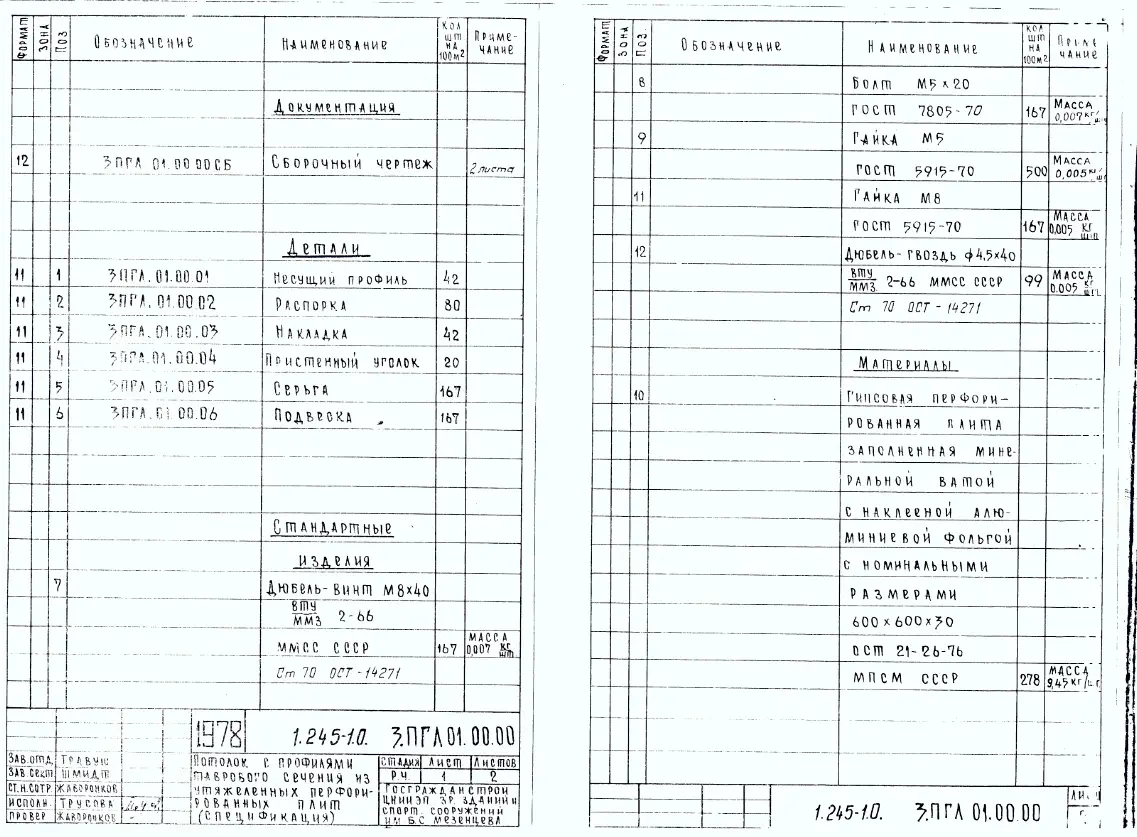 ФОРМАТ ЗОНА ПОЗ ОБОЗНАЧЕНИЕ НАИМЕНОВАНИЕ КОЛ ШТ НА 100М² ПРИМЕ-ЧАНИЕ
ДОКУМЕНТАЦИЯ
12 3ПГЛ 01.00 00 СБ СБОРОЧНЫЙ ЧЕРТЕЖ 2 листа
ДЕТАЛИ
11 1 3ПГЛ.01.00.01 НЕСУЩИЙ ПРОФИЛЬ 42
11 2 3ПГЛ.01.00 02 РАСПОРКА 80
11 3 3ПГЛ.01.00.03 НАКЛАДКА 42
11 4 3ПГЛ.01.00.04 ПРИСТЕННЫЙ УГОЛОК 20
11 5 3ПГЛ.01.00.05 СЕРЬГА 167
11 6 3ПГЛ.01 00.06 ПОДВЕСКА 167
СТАНДАРТНЫЕ
ИЗДЕЛИЯ
7 ДЮБЕЛЬ-ВИНТ М8х40
ВТУ/ММЗ 2-66
ММСС СССР 167 МАССА 0,007 КГ/ШТ
Ст 70 ОСТ-14271
1978 1.245-1.0. 3.ПГЛ 01.00.00
ЗАВ.ОТД. ТРАВУШ
ЗАВ.СЕКТ. ШМИДТ
СТ.Н.СОТР. ЖАВОРОНКОВ
ИСПОЛН. ТРУСОВА
ПРОВЕР ЖАВОРОНКОВ
ПОТОЛОК С ПРОФИЛЯМИ
ТАВРОВОГО СЕЧЕНИЯ ИЗ
УТЯЖЕЛЕННЫХ ПЕРФОРИ-
РОВАННЫХ ПЛИТ
(СПЕЦИФИКАЦИЯ)
СТАДИЯ ЛИСТ ЛИСТОВ
Р.Ч. 1 2
ГОСГРАЖДАНСТРОЙ
ЦНИИЭП ЗР. ЗДАНИЙ И
СПОРТ. СООРУЖЕНИЙ
ИМ Б.С МЕЗЕНЦЕВА
ФОРМАТ ЗОНА ПОЗ. ОБОЗНАЧЕНИЕ НАИМЕНОВАНИЕ КОЛ ШТ НА 100М² ПРИМЕ ЧАНИЕ
8 БОЛТ М5х20
ГОСТ 7805-70 167 МАССА 0,007 кг/шт
9 ГАЙКА М5
ГОСТ 5915-70 500 МАССА 0,005 кг/шт
11 ГАЙКА М8
ГОСТ 5915-70 167 МАССА 0.005 КГ/ШТ
12 ДЮБЕЛЬ-ГВОЗДЬ ф4,5х40
ВТУ/ММЗ. 2-66 ММСС СССР 99 МАССА 0.005 КГ/ШТ
Ст 70 ОСТ-14271
МАТЕРИАЛЫ
10 ГИПСОВАЯ ПЕРФОРИ-
РОВАННАЯ ПЛИТА
ЗАПОЛНЕННАЯ МИНЕ-
РАЛЬНОЙ ВАТОЙ
С НАКЛЕЕНОЙ АЛЮ-
МИНИЕВОЙ ФОЛЬГОЙ
С НОМИНАЛЬНЫМИ
РАЗМЕРАМИ
600х600х30
ОСТ 21-26-76
МПСМ СССР 278 МАССА 9,45 КГ/шт.
1.245-1.0. 3.ПГЛ 01.00.00